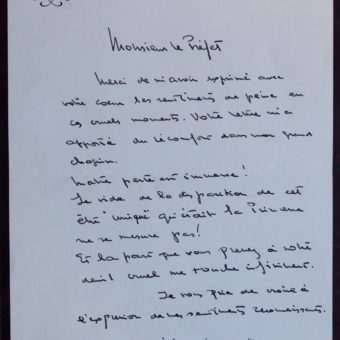 Monsieur le Préfet
Merci de m'avoir exprimé avec
votre coeur les sentiments de peine en
ces cruels moments. Votre lettre m'a
apporté du réconfort dans mon grand
chagrin.
Notre perte est immense!
Le vide de la disparition de cet
être "unique" qu'était la Princesse
ne se mesure pas!
Et la part que vous prenez à notre
deuil cruel me touche infiniment.
Je vous prie de croire à
l'expression de mes sentiments reconnaissants.